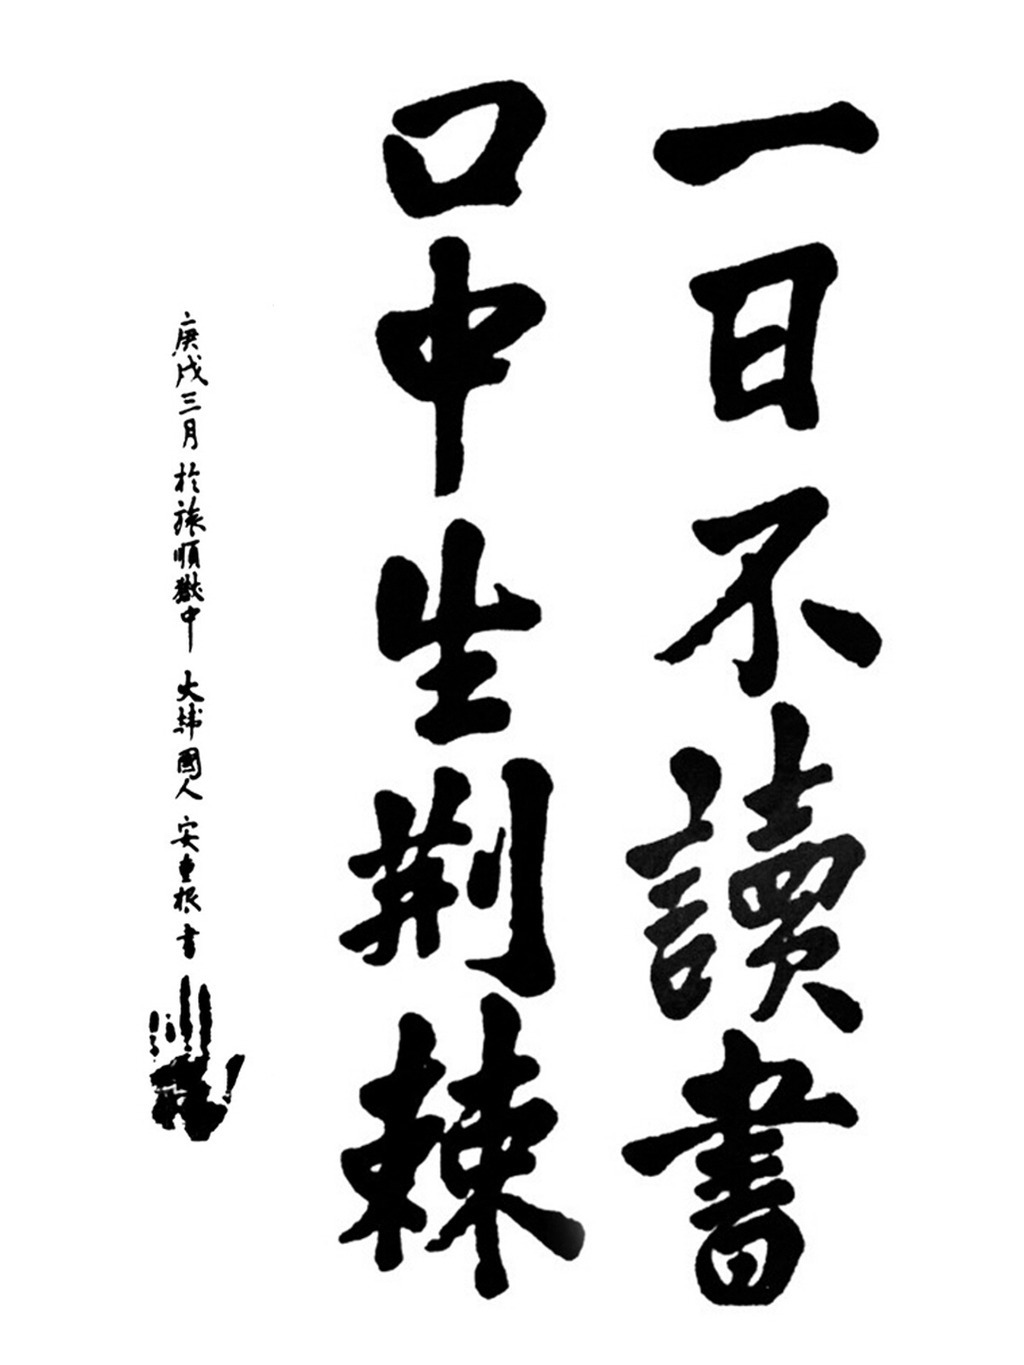 一日不讀書
口中生荊棘
庚戌三月 於旅順獄中 大韓國人 安重根 書